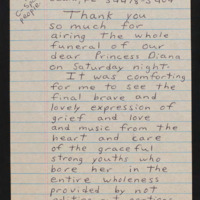 people
Thank you
so much for
airing the whole
funeral of our
dear Princess Diana
on Saturday night.
It was comforting
for me to see the
final brave and
lovely expression of
grief and love
and music from the
heart and care
of the graceful
strong youths who
bore her in the
entire wholeness
provided by not